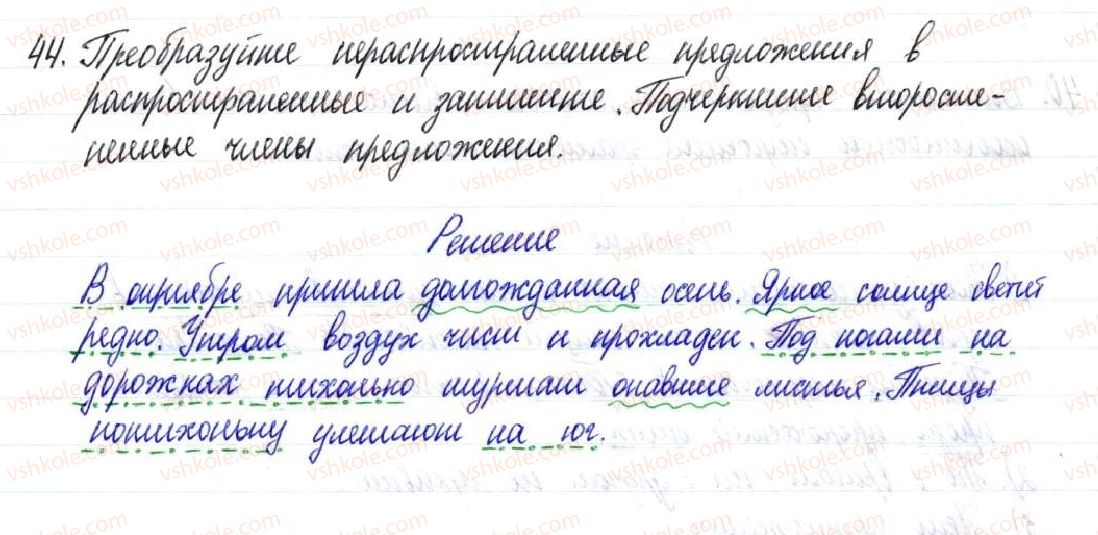 44. Преобразуйте нераспространенные предложения в
распространенные и запишите. Подчеркните второсте-
пенные члены предложения.
Решение
В октябре пришла долгожданная осень. Яркое солнце светит
редко. Утром воздух чист и прохладен. Под ногами на
дорожках тихонько шуршат опавшие листья. Птицы
потихоньку улетают на юг.
vshkole.com